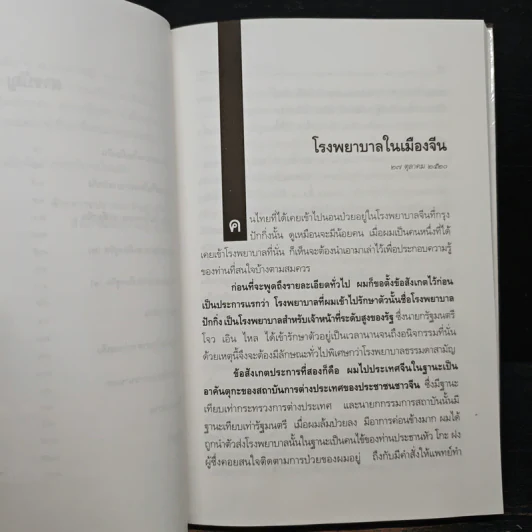 โรงพยาบาลในเมืองจีน
๒๗ ตุลาคม ๒๕๒๐
คนไทยที่ได้เคยเข้าไปนอนป่วยอยู่ในโรงพยาบาลจีนที่กรุง
ปักกิ่งนั้น ดูเหมือนจะมีน้อยคน เมื่อผมเป็นคนหนึ่งที่ได้
เคยเข้าโรงพยาบาลที่นั่น ก็เห็นจะต้องนำเอามาเล่าไว้เพื่อประกอบความรู้
ของท่านที่สนใจบ้างตามสมควร
ก่อนที่จะพูดถึงรายละเอียดทั่วไป ผมก็ขอตั้งข้อสังเกตไว้ก่อน
เป็นประการแรกว่า โรงพยาบาลที่ผมเข้าไปรักษาตัวนั้นชื่อโรงพยาบาล
ปักกิ่ง เป็นโรงพยาบาลสำหรับเจ้าหน้าที่ระดับสูงของรัฐ ซึ่งนายกรัฐมนตรี
โจว เอิน ไหล ได้เข้ารักษาตัวอยู่เป็นเวลานานจนถึงอนิจกรรมที่นั่น
ด้วยเหตุนี้จึงจะต้องมีลักษณะทั่วไปพิเศษกว่าโรงพยาบาลธรรมดาสามัญ
ข้อสังเกตประการที่สองก็คือ ผมไปประเทศจีนในฐานะเป็น
อาคันตุกะของสถาบันการต่างประเทศของประชาชนชาวจีน ซึ่งมีฐานะ
เทียบเท่ากระทรวงการต่างประเทศ และนายกกรรมการสถาบันนั้นมี
ฐานะเทียบเท่ารัฐมนตรี เมื่อผมล้มป่วยลง มีอาการค่อนข้างมาก ผมได้
ถูกนำตัวส่งโรงพยาบาลนั้นในฐานะเป็นคนไข้ของท่านประธานหัว โกะ ฝง
ผู้ซึ่งคอยสนใจติดตามการป่วยของผมอยู่ ถึงกับมีคำสั่งให้แพทย์ทำ